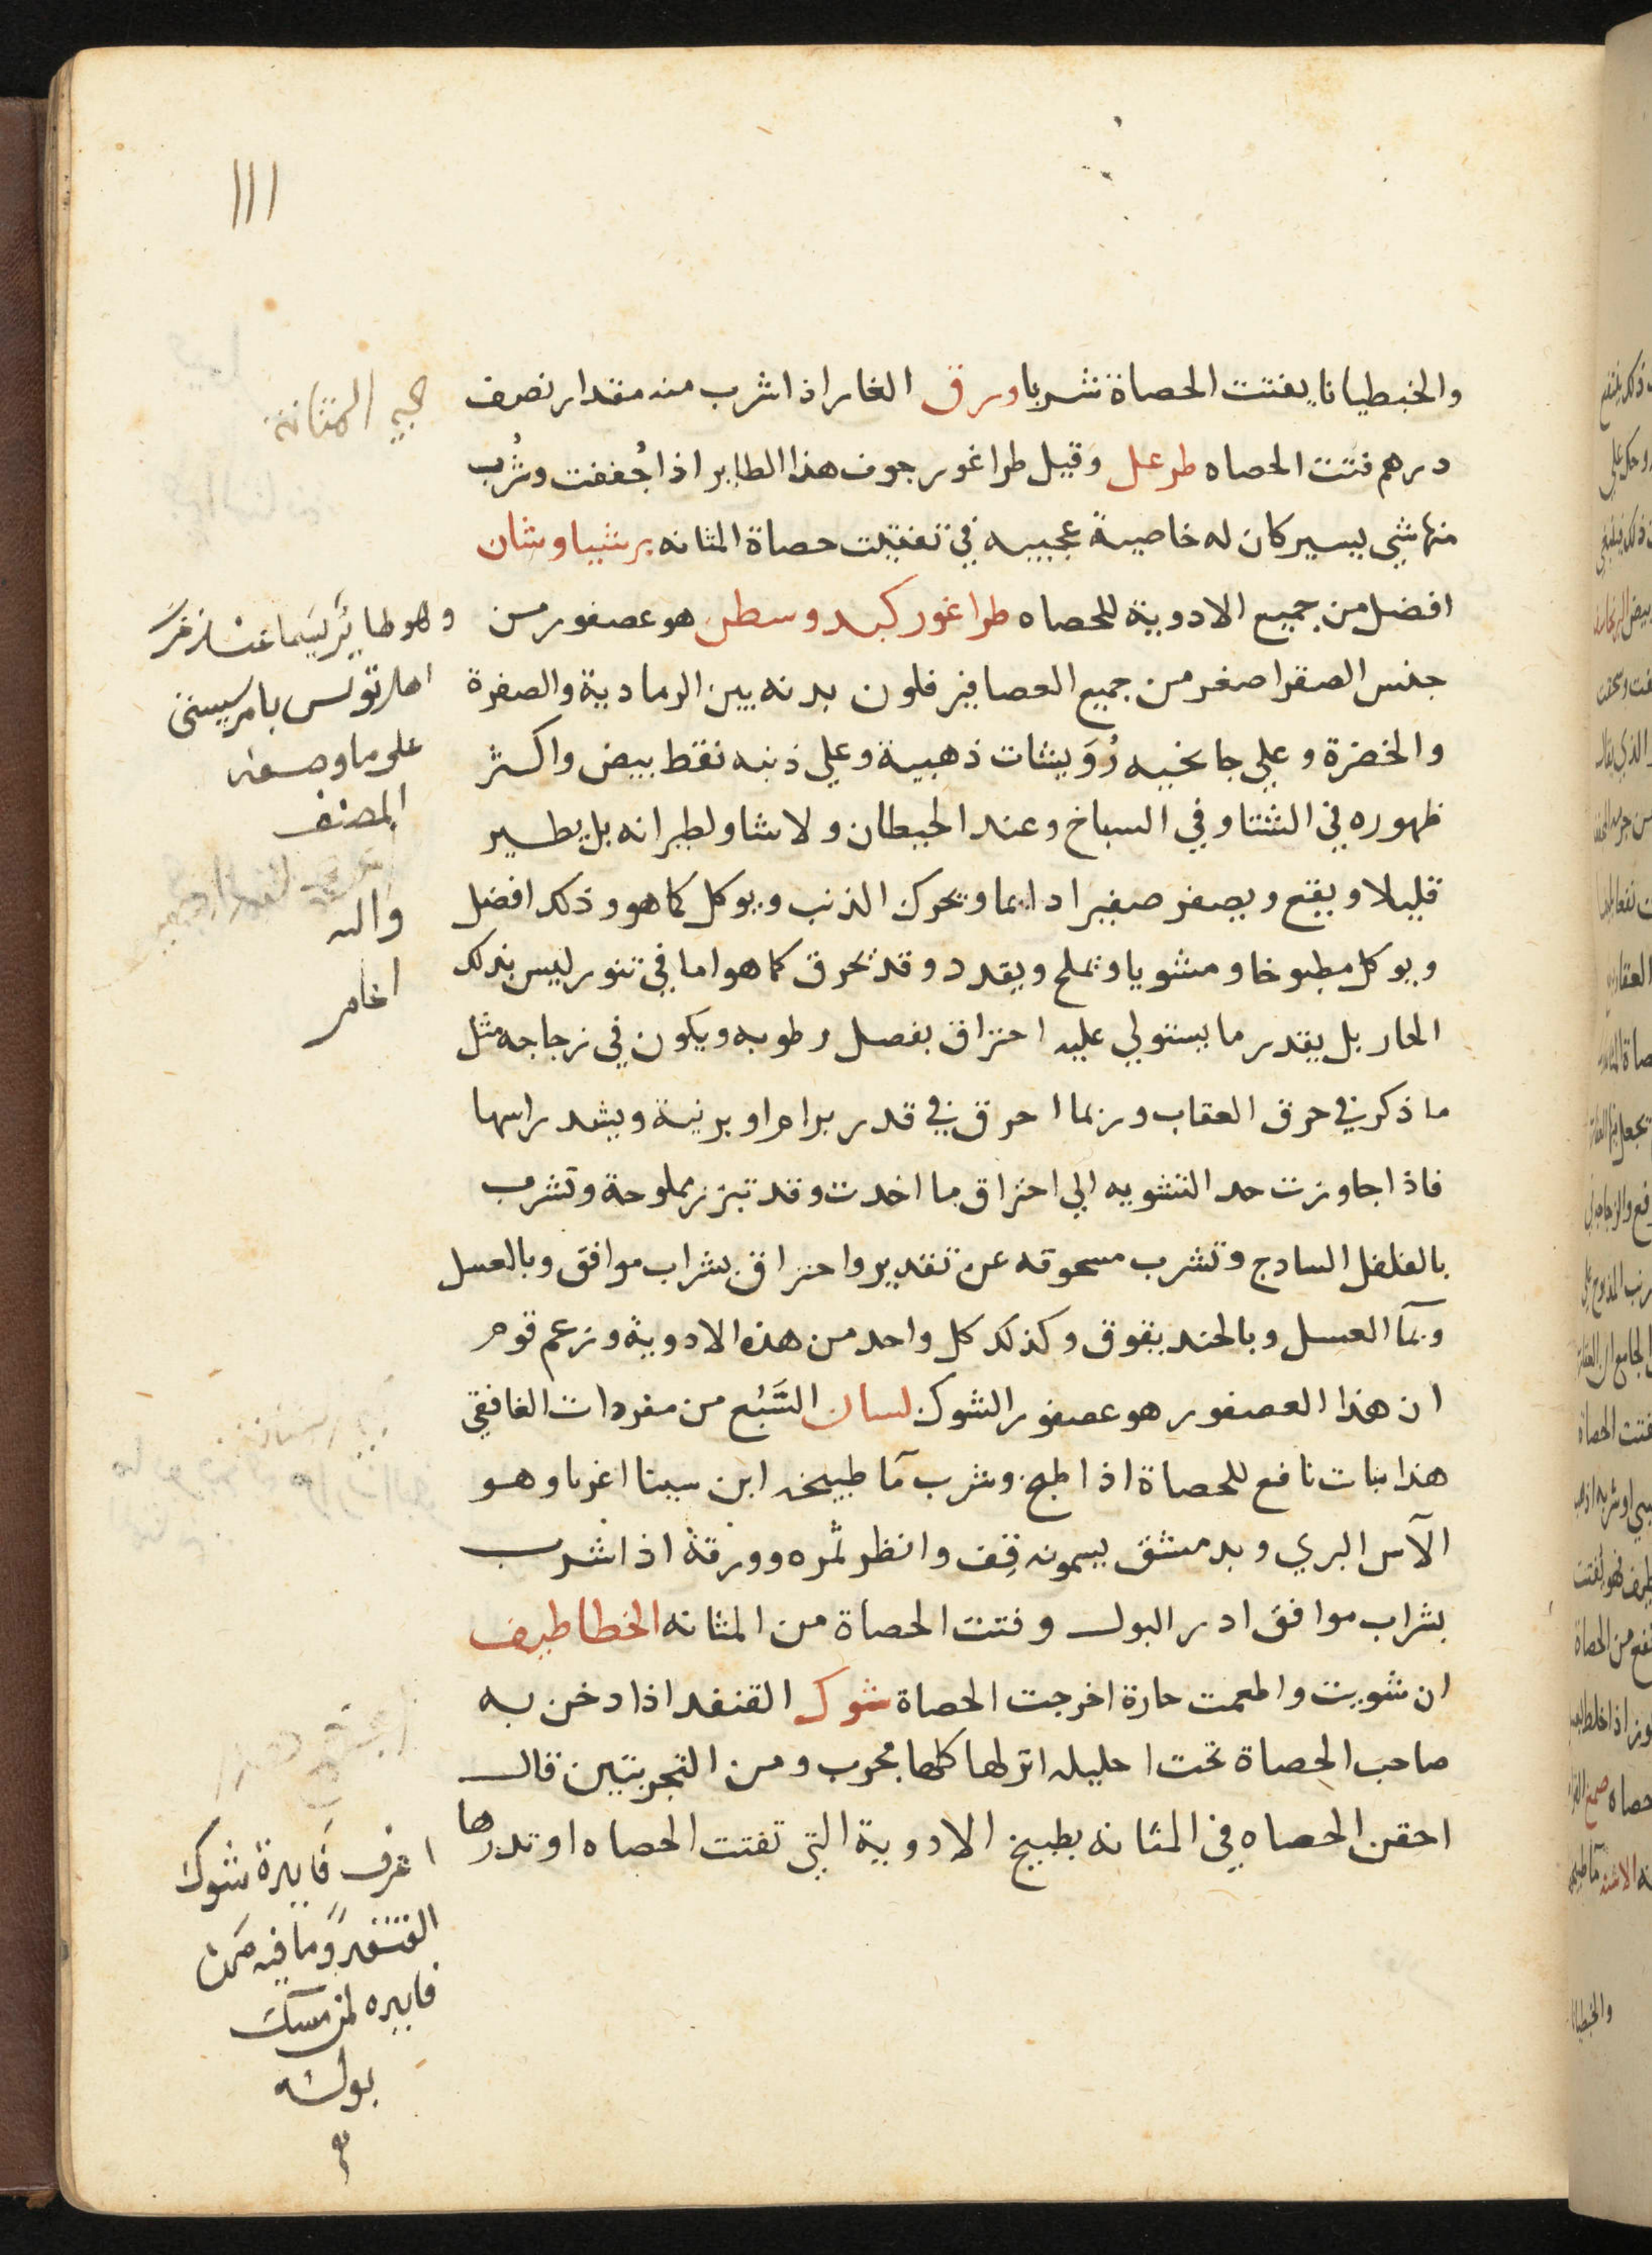 ١١١
والخبطيانا يفتت الحصاة شربا ورق الغار اذا شرب منه مقدار نصف
درهم فتت الحصاه طرعل وقيل طراغور جوف هذا الطاير اذا جُففت وشُرب
منها شي يسير كان له خاصية عجيبه في تفتيت حصاة المثانه برشياوشان
افضل من جميع الادوية للحصاه طراغور كبد وسطر هو عصفور من
جنس الصقر اصغر من جميع العصافير فلون بدنه بين الرمادية والصفرة
والخضرة وعلي جانحيه رُوَيشات ذهبية وعلي ذنبه نقط بيض واكثر
ظهوره في الشتا وفي السباخ وعند الحيطان ولا شاو لطيرانه بل يطير
قليلا ويقع ويصفر صفيرا دايما ويحرك الذنب ويوكل كما هو وذلك افضل
ويوكل مطبوخا ومشويا ويملح ويقدد وقد يحرق كما هو اما في تنور ليس بذلك
الحار بل يقدر ما يستولي عليه احتراق بفصل رطوبه ويكون في زجاجه مثل
ما ذكر في حرق العقاب وربما احرق في قدر برام او برنية ويشد راسها
فاذا جاوزت حد التشويه الي احتراق ما اخدت وقد تبزر بملوحة وتشرب
بالفلفل السادج وتشرب مسحوقه عن تقدير واحتراق بشراب موافق وبالعسل
وبمآ العسل وبالحند يقوق وكذلك كل واحد من هذه الادوية وزعم قوم
ان هذا العصفور هو عصفور الشوك لسان السَّبُع من مفردات الغافقي
هذا نبات نافع للحصاة اذا طبخ وشرب مآ طبيخه ابن سينا اغرنا وهو
الآس البري وبدمشق يسمونه قِف وانظر ثمره وورقهُ اذا شرب
بشراب موافق ادر البول وفتت الحصاة من المثانه الخطاطيف
ان شويت واطعمت حارة اخرجت الحصاة شوك القنفد اذا دخن به
صاحب الحصاة تحت احليله انزلها كلها مجرب ومن التجربتين قال
احقن الحصاه في المثانه بطبيخ الادوية التي تفتت الحصاه او تدرها
المثانة
وهو طاير
اهل تونس
على ما وصفه
المصنف
والله
اعلم
اعرف فايدة شوك
القنفد وما فيه من
فايده لمن مسك
بوله